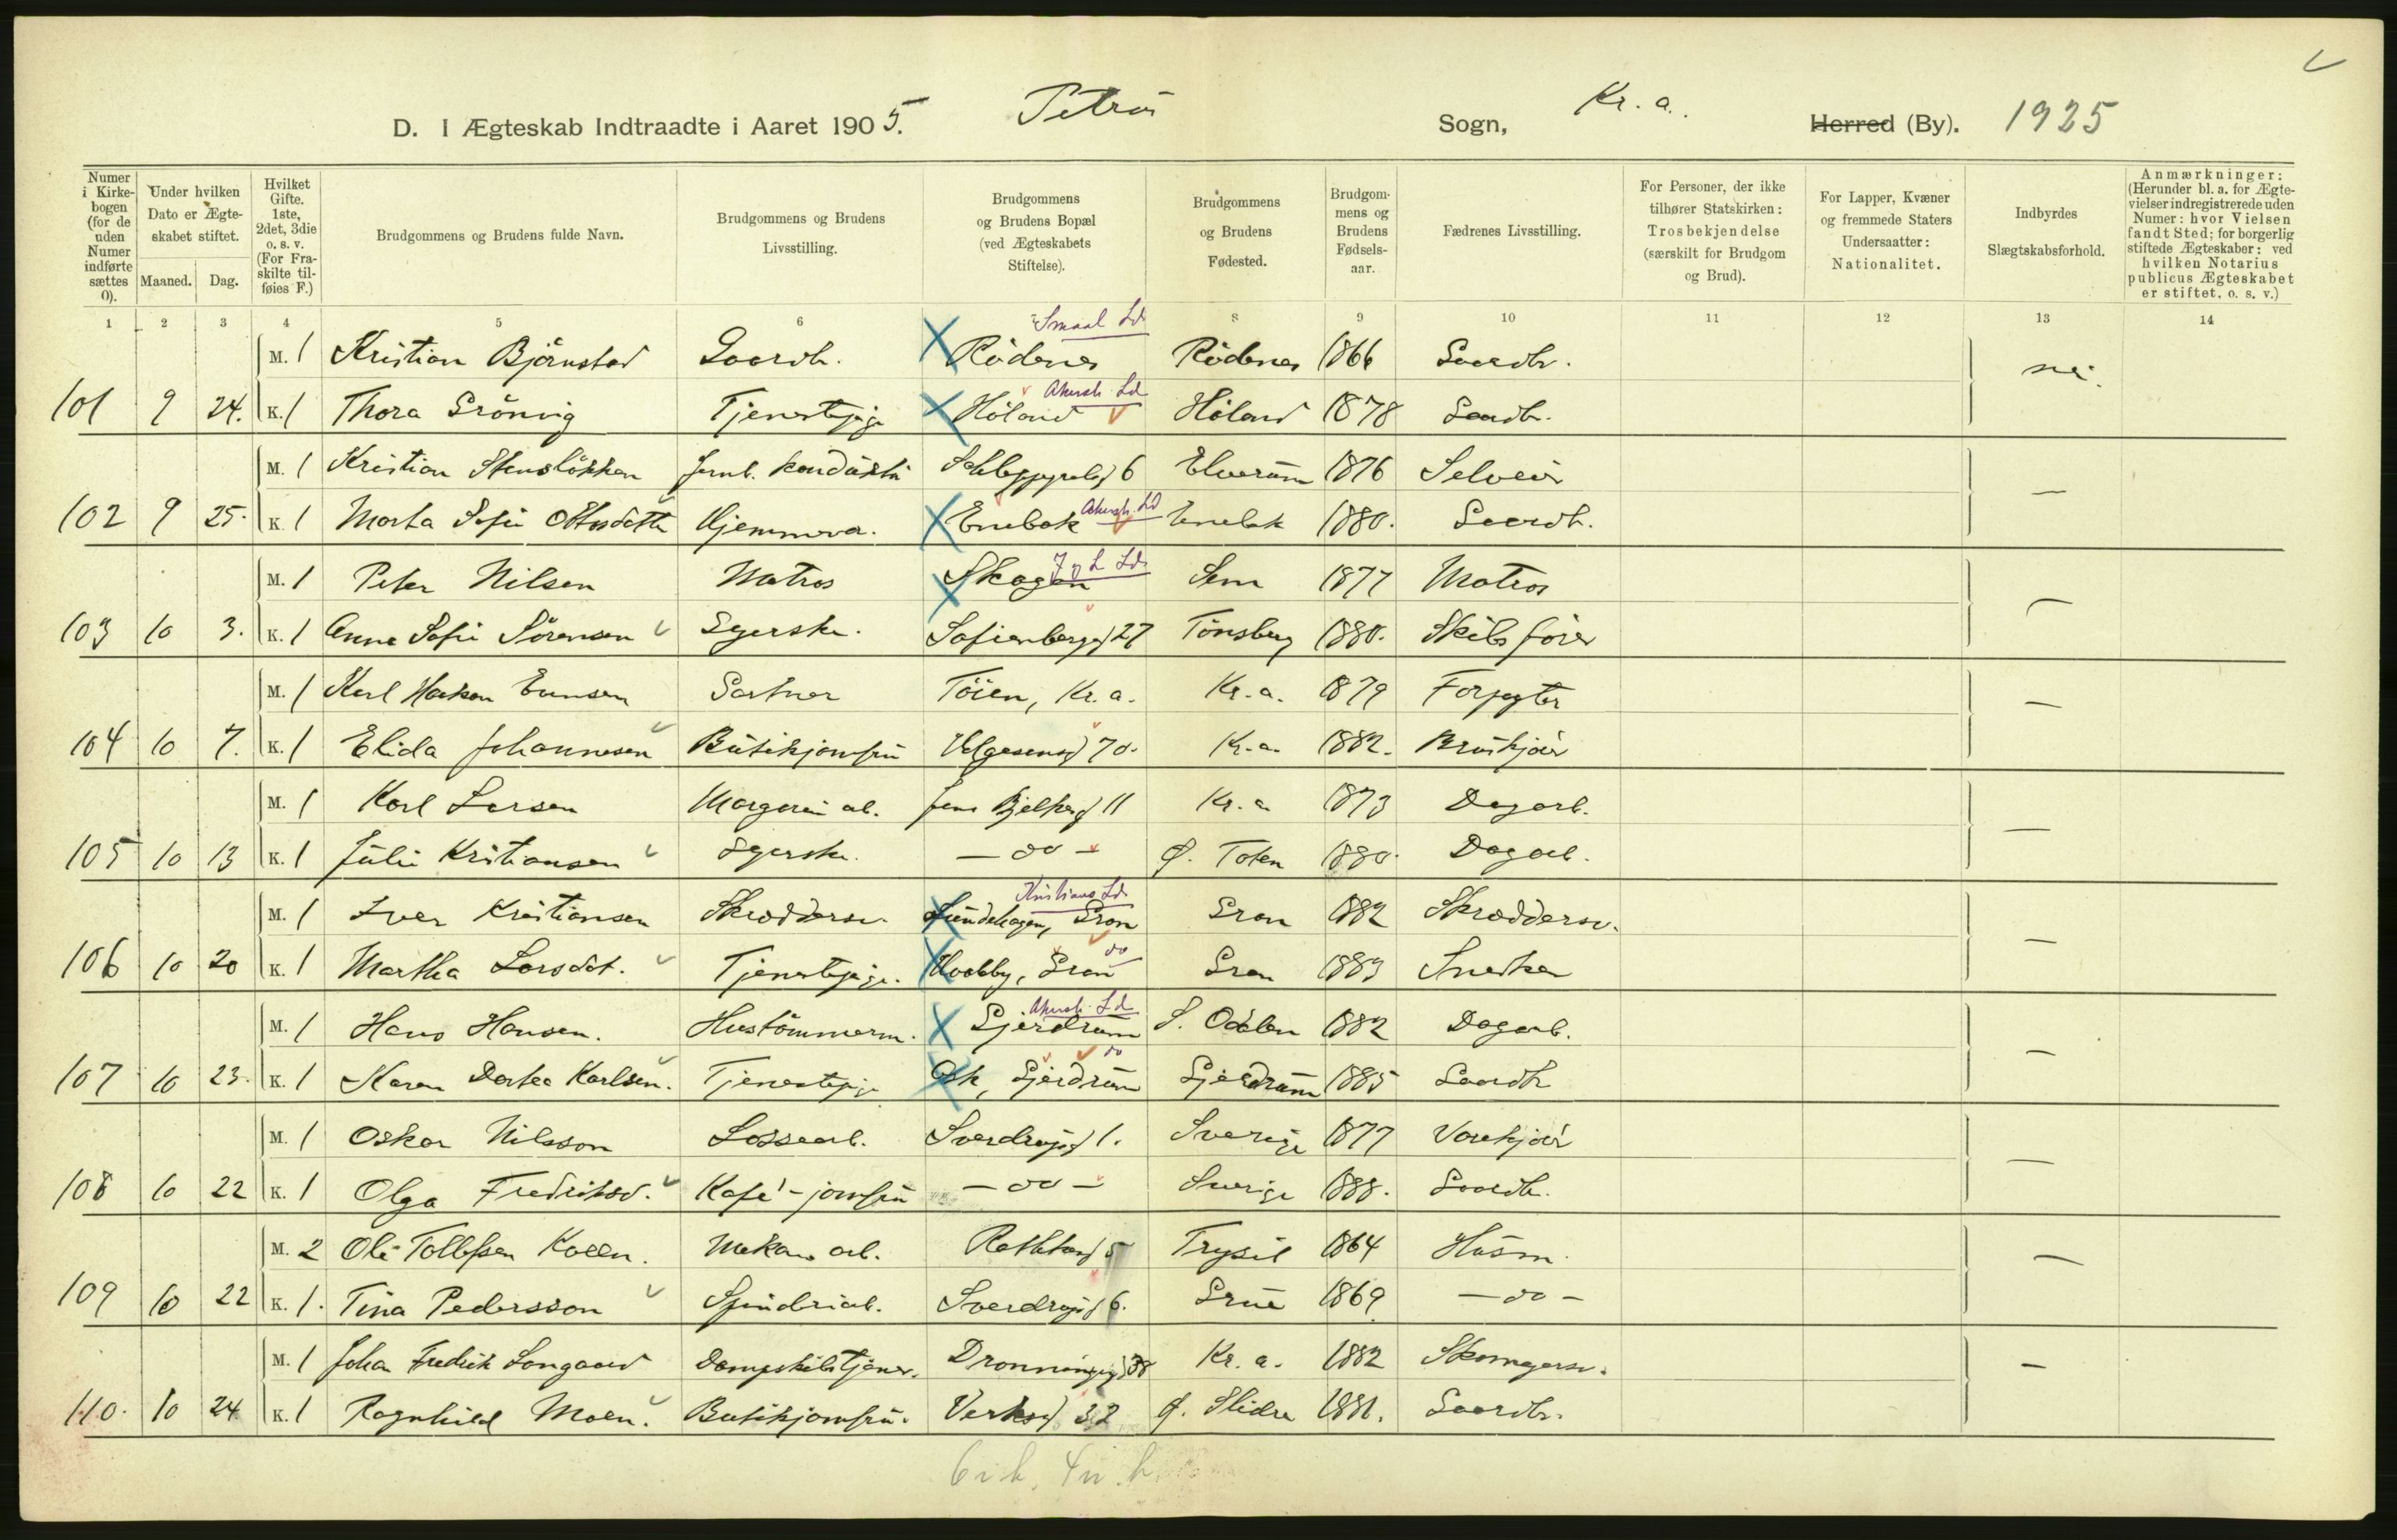 D. I Ægteskab Indtraadte i Aaret 1905. Petrus Sogn, Kr. a. Herred (By). 1925
Numer i Kirkebogen (for de uden Numer indførte sættes 0).
Under hvilken Dato er Ægteskabet stiftet.
Maaned. Dag.
Hvilket Gifte. 1ste, 2det, 3die o. s. v. (For Fraskilte tilføies F.)
Brudgommens og Brudens fulde Navn.
Brudgommens og Brudens Livsstilling.
Brudgommens og Brudens Bopæl (ved Ægteskabets Stiftelse).
Brudgommens og Brudens Fødested.
Brudgommens og Brudens Fødselsaar.
Fædrenes Livsstilling.
For Personer, der ikke tilhører Statskirken: Trosbekjendelse (særskilt for Brudgom og Brud).
For Lapper, Kvæner og fremmede Staters Undersaatter: Nationalitet.
Indbyrdes Slægtskabsforhold.
Anmærkninger: (Herunder bl. a. for Ægtevielser indregistrerede uden Numer: hvor Vielsen fandt Sted; for borgerlig stiftede Ægteskaber: ved hvilken Notarius publicus Ægteskabet er stiftet, o. s. v.)
1 2 3 4 5 6 7 8 9 10 11 12 13 14
Smaal Ld
M. 1 Kristian Björnstad Gaardb. Rödenes Rödenes 1866 Gaardbr. nei.
Akersh Ld
101 9 24. K. 1 Thora Grönvig Tjenestepige Höland Höland 1878 Gaardbr.
M. 1 Kristian Stenslökken Jernb. konduktör Schleppegrelsg 6 Elverum 1876 Selveier —
102 9 25. K. 1 Marta Sofie Ottosdatter Hjemmev. Enebak Akersh. Ld Enebak 1880. Gaardb.
M. 1 Peter Nilsen Matros Skogen J. & L. Ld. Sem 1877 Matros —
103 10 3. K. 1 Anna Sofie Sörensen Syerske. Sofienbergg 27 Tönsberg 1880. Skibsförer
M. 1 Karl Haakon Evensen Gartner Töien, Kr. a. Kr. a. 1879 Forpagter —
104 10 7. K. 1 Elida Johannesen Butikjomfru Helgesensg 70. Kr. a. 1882. Bruskjör
M. 1 Karl Larsen Margarin arb. Jens Bjelkesg 11 Kr. a. 1873 Dagarb. —
105 10 13 K. 1 Julie Kristiansen Syerske. — do — Ø. Toten 1880. Dagarb.
Kristians Ld.
M. 1 Iver Kristiansen Skræddersv. Lundehagen, Gran Gran 1882 Skræddersv. —
106 10 20 K. 1 Martha Larsdat. Tjenestepige. Hvalby, Gran do Gran 1883 Snedker
Akersh. Ld
M. 1 Hans Hansen. Hustömmerm. Gjerdrum S. Odalen 1882 Dagarb. —
107 10 23. K. 1 Karen Dortea Karlsen. Tjenestepige Ask, Gjerdrum do Gjerdrum 1885 Gaardb
M. 1 Oskar Nilsson Lossearb. Sverdrupsg 1. Sverige 1877 —
108 10 22 K. 1 Olga Fredriksd. Kafé-jomfru — do — Sverige 1888. Gaardb.
M. 2 Ole Tollefsen Koen. Mekan. arb. Rathkesg 5 Trysil 1864 Husm. —
109 10 22 K. 1. Tina Pedersson Spinderiarb. Sverdrupsg 6. Grue 1869 — do —
M. 1 Johan Fredrik Longaard Dampskibstjener. Dronningensg 38 Kr. a. 1882 Skomagersv. —
110. 10 24 K. 1 Ragnhild Moen. Butikjomfru. Verksg 32 Ø. Slidre 1881. Gaardbr.